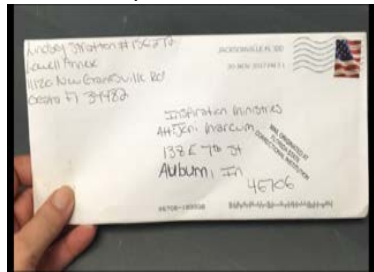 Lindsey Stratton #
Lowell Annex
11120 NW Gainesville Rd
Ocala Fl 34482
JACKSONVILLE FL 320
30 NOV 2017 PM 1
Inspiration Ministries
Attn: Marcum
138 E 7th St
Auburn, In
46706
MAIL ORIGINATED AT
FLORIDA STATE
CORRECTIONAL INSTITUTION